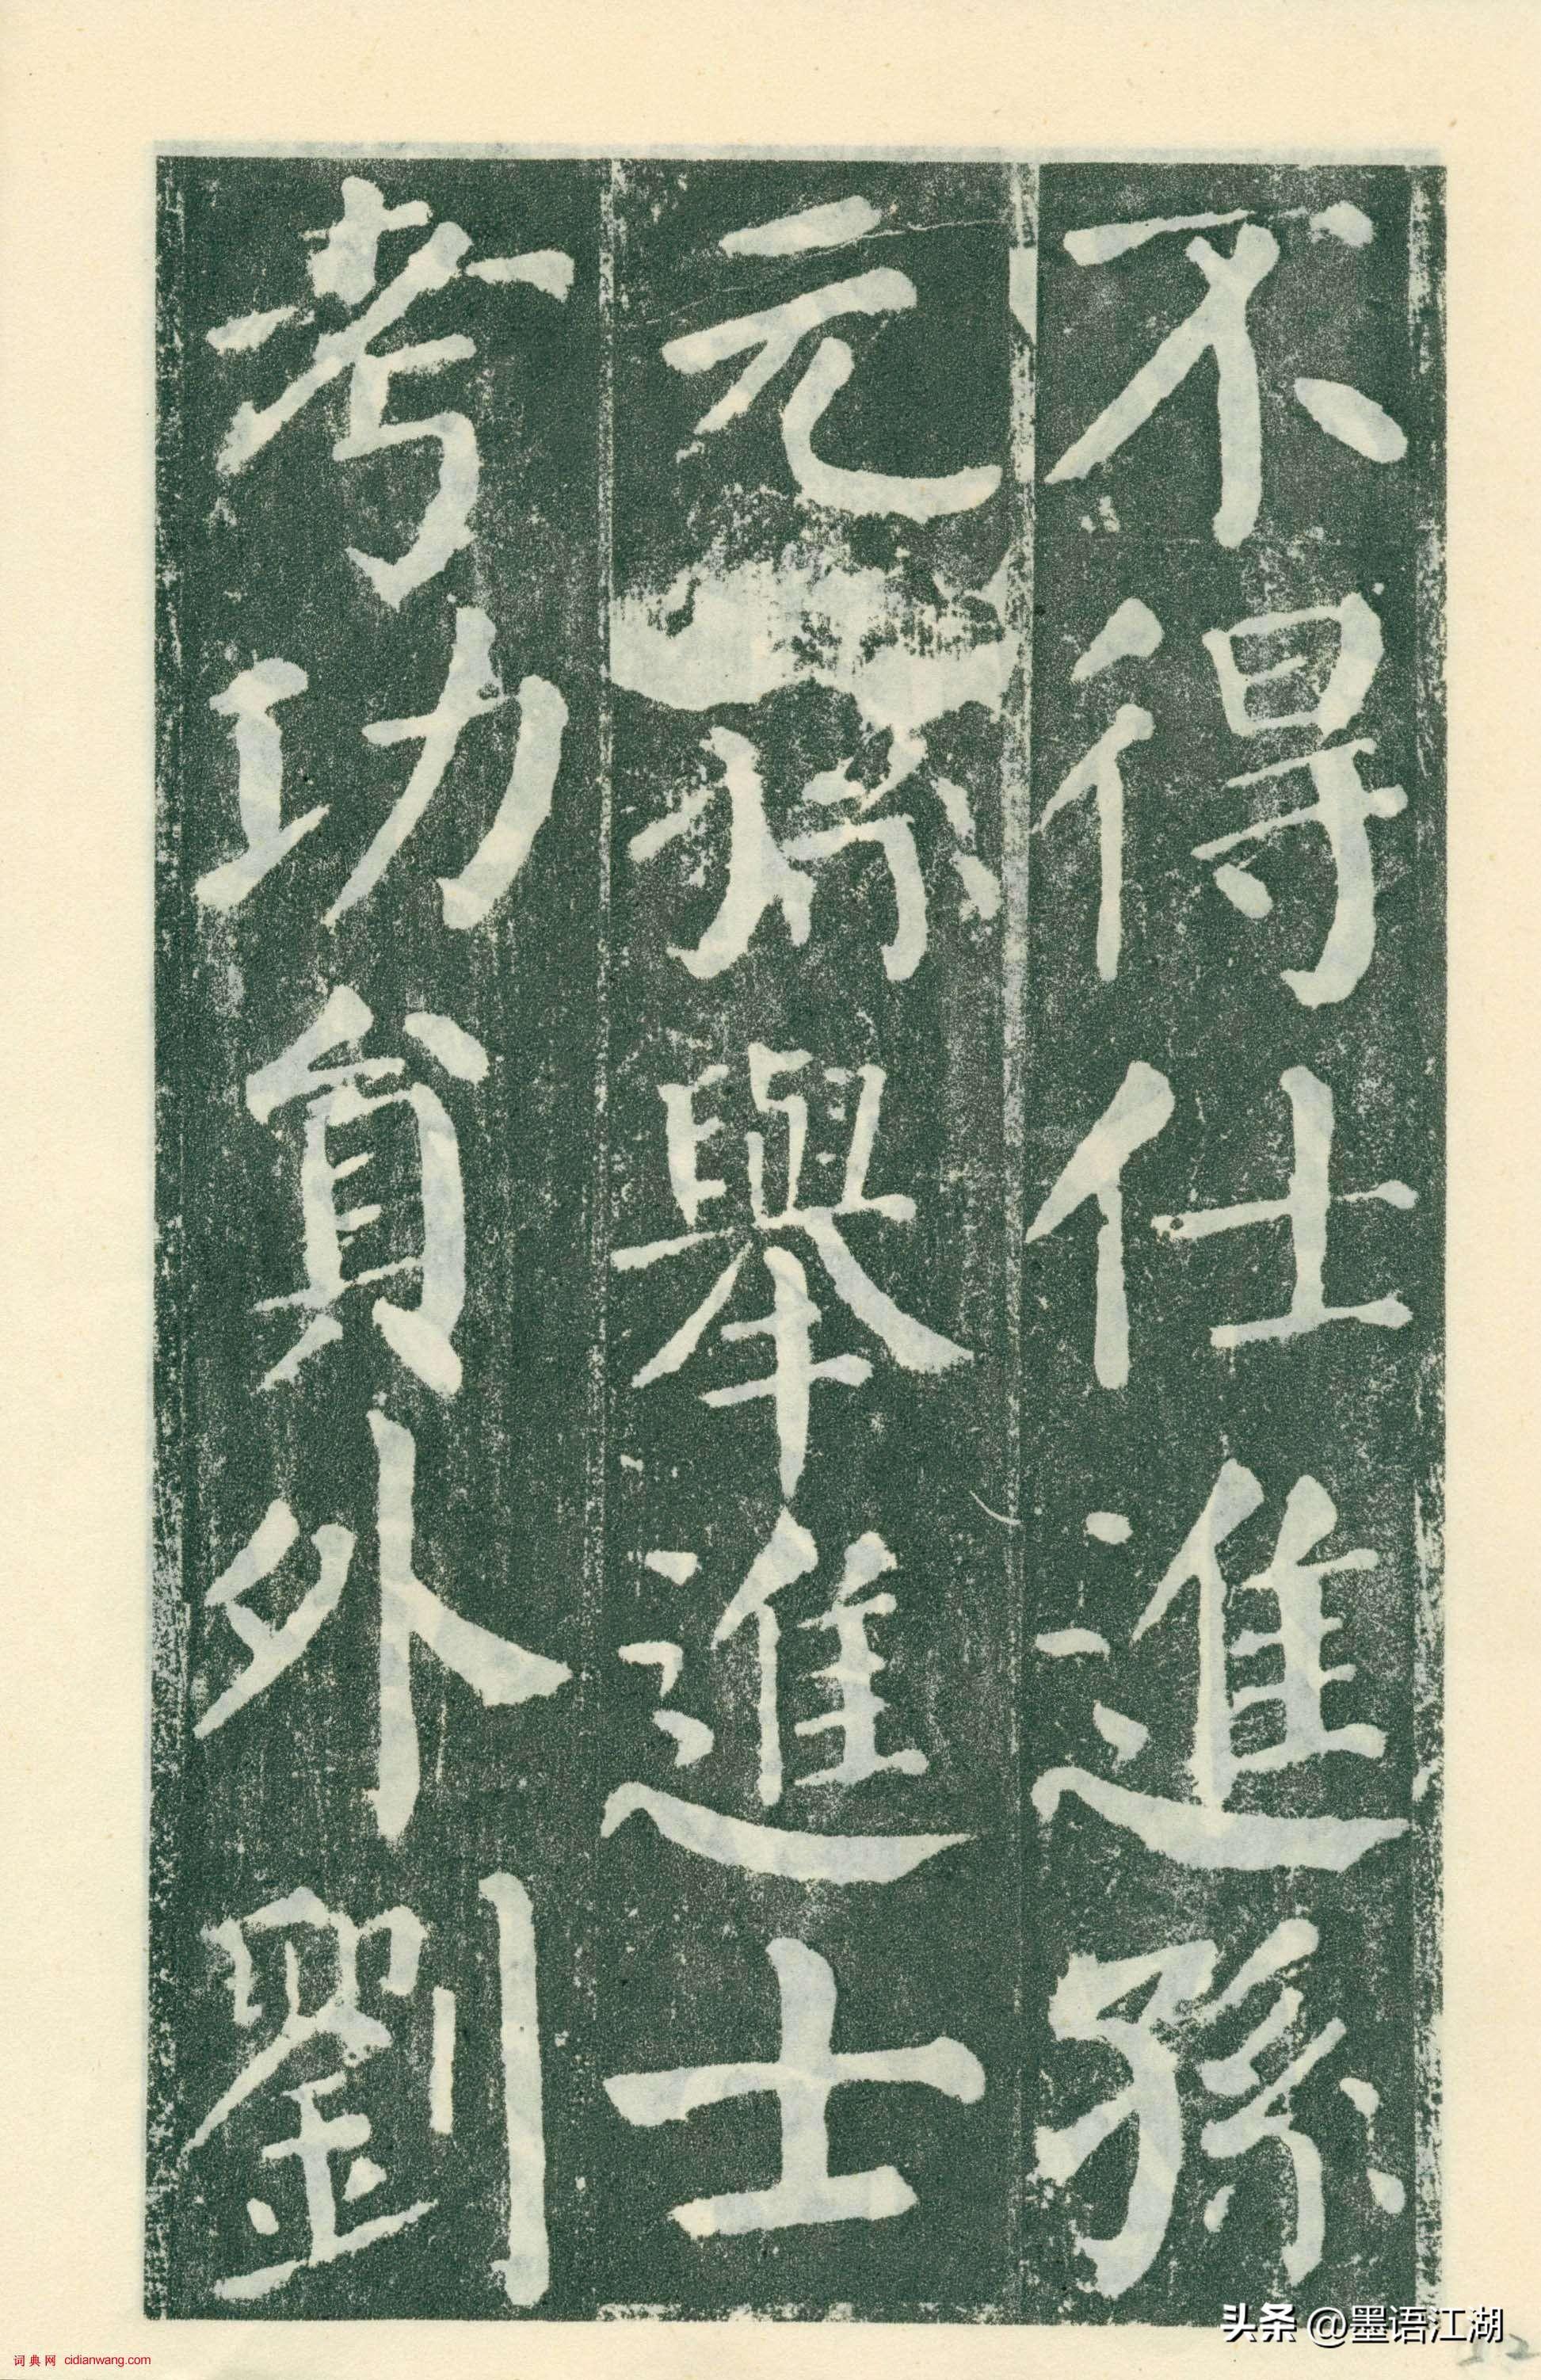 不得仕進孫
元孫舉進士
考功員外劉
头条 @墨语江湖
词典网 cidianwang.com